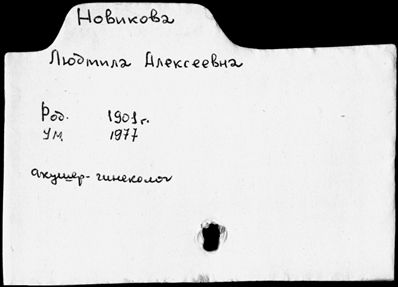 Новикова
Людмила Алексеевна
Род. 1901 г.
Ум. 1977
акушер-гинеколог